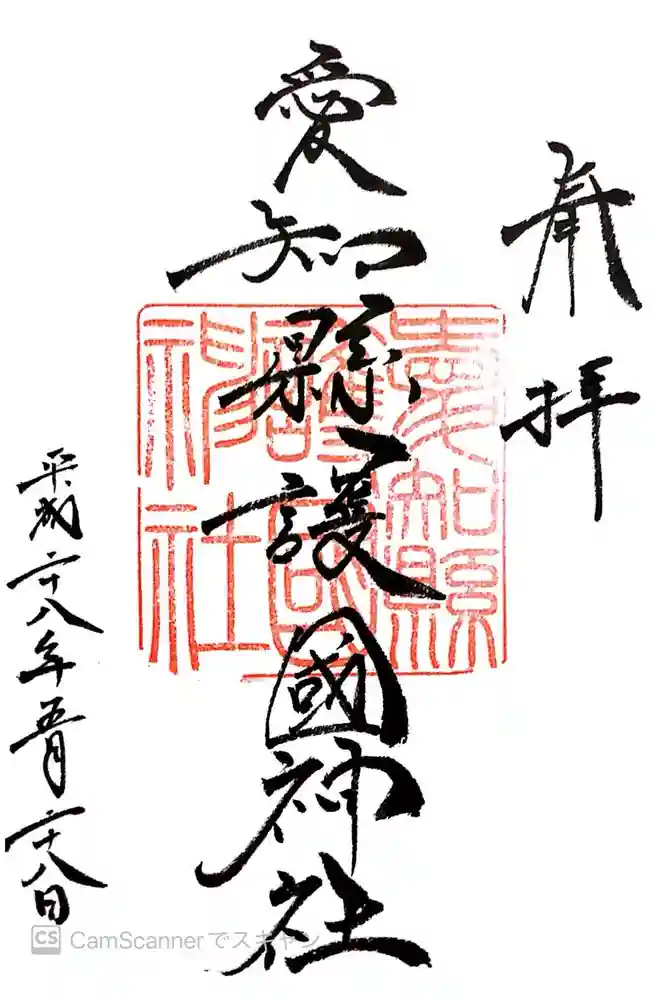 奉拝
愛知縣護國神社
愛知縣護國神社
平成二十八年五月二十八日
CS CamScannerでスキャン